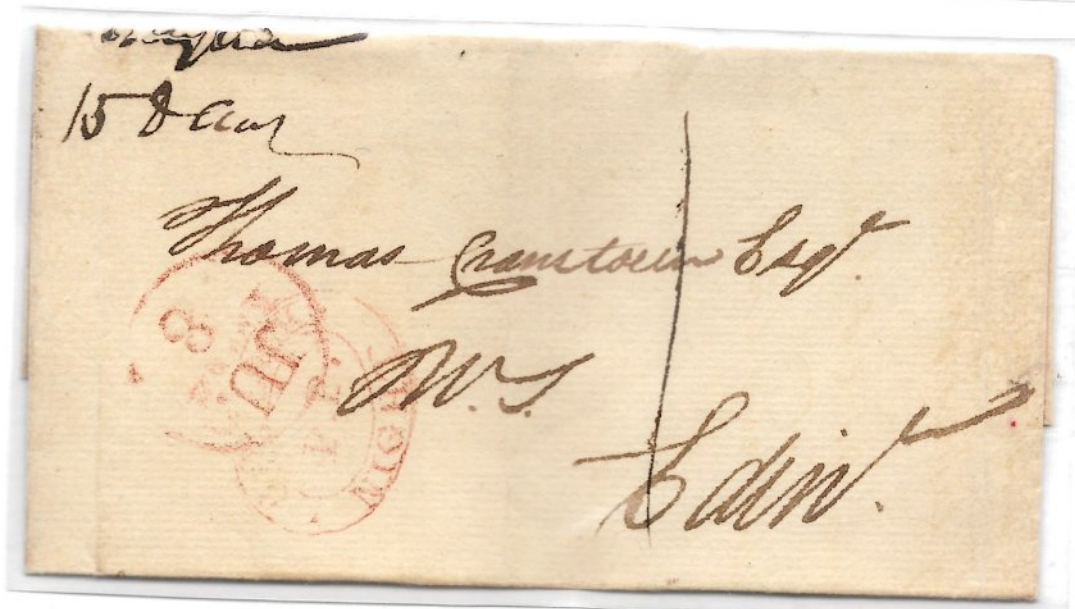 15 Decr
Thomas Cranstoun Esqr.
W.S.
Edinr.
8
JU
NIGHT